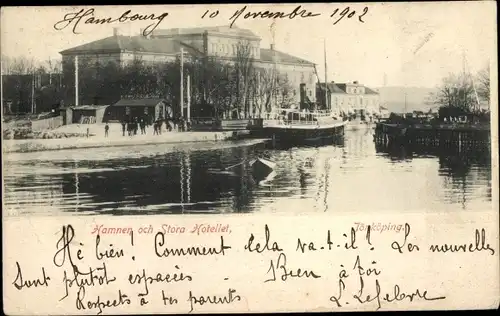 Hambourg 10 Novembre 1902
Hamnen och Stora Hotellet, Jönköping.
Hé bien! Comment cela va-t-il! Les nouvelles
Sont plutôt espacées Bien à toi
Respects à tes parents L. Lefebvre